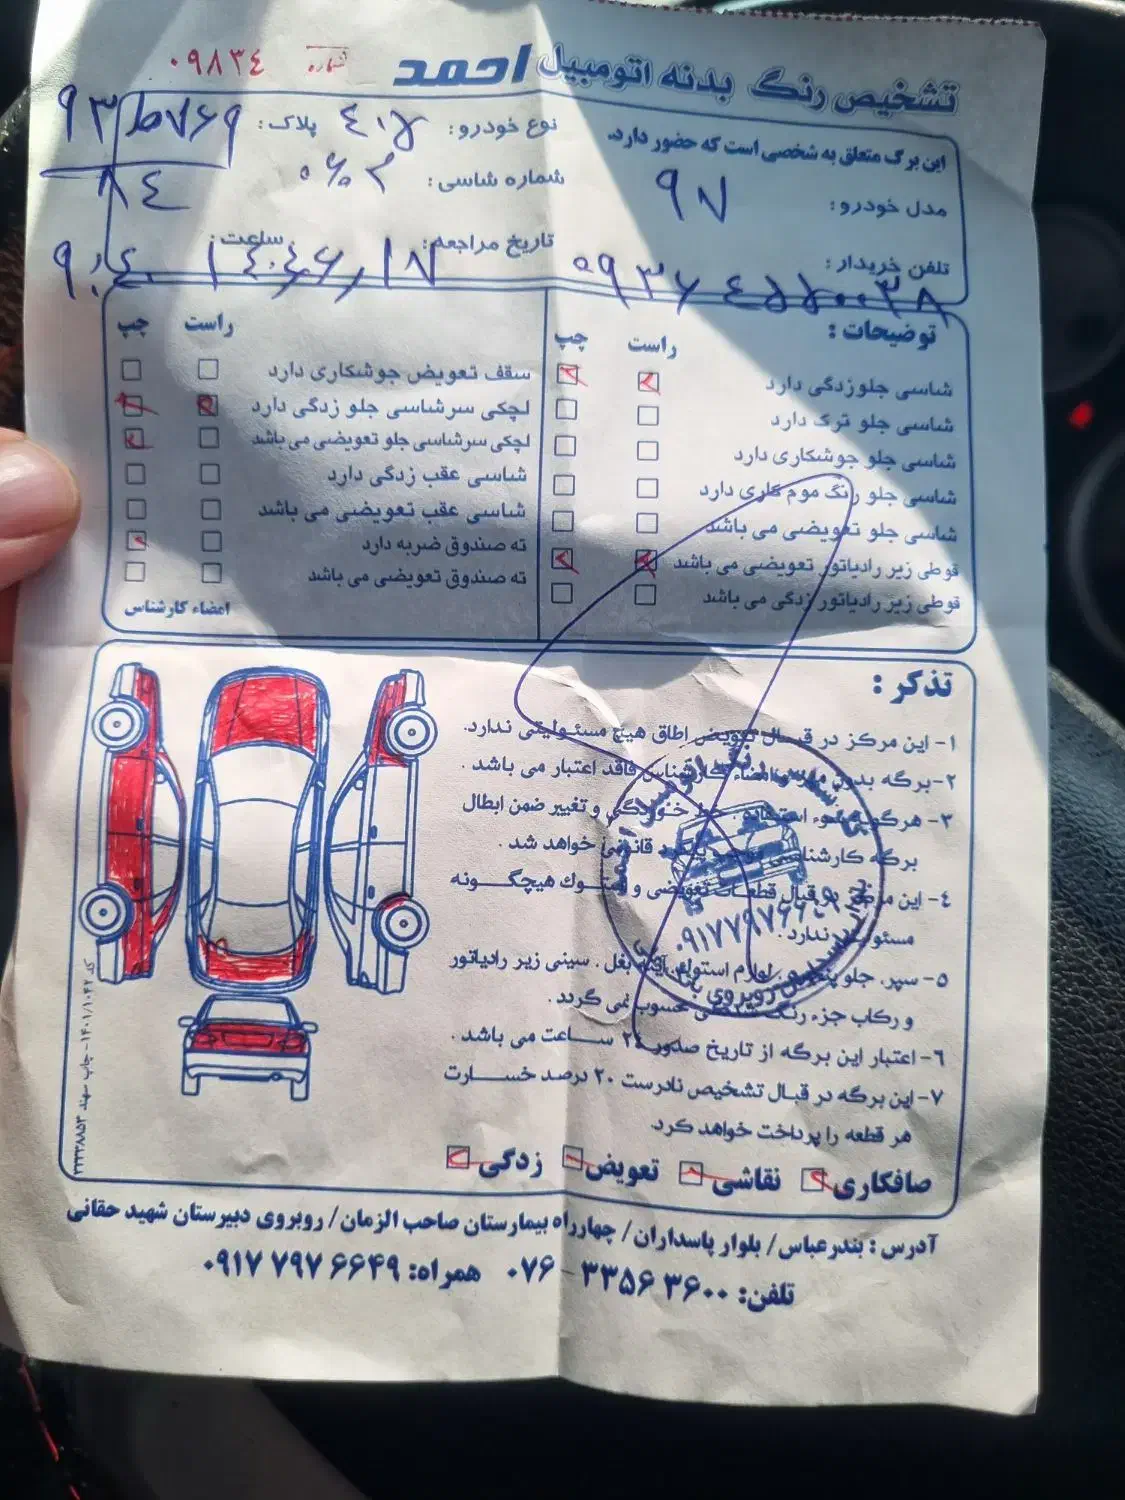 تشخیص رنگ بدنه اتومبیل احمد
شماره ۰۹۸۳٤
این برگ متعلق به شخصی است که حضور دارد.
نوع خودرو: ٤۰۵
پلاک: ۹۳ ط ۷۶۹
۸٤
مدل خودرو: ۹۷
شماره شاسی:
تلفن خریدار:
تاریخ مراجعه:
ساعت: ۹:٤۰
توضیحات:
راست چپ
شاسی جلوزدگی دارد
شاسی جلو ترک دارد
شاسی جلو جوشکاری دارد
شاسی جلو رنگ موم کاری دارد
شاسی جلو تعویضی می باشد
قوطی زیر رادیاتور تعویضی می باشد
قوطی زیر رادیاتور زدگی می باشد
راست چپ
سقف تعویض جوشکاری دارد
لچکی سرشاسی جلو زدگی دارد
لچکی سرشاسی جلو تعویضی می باشد
شاسی عقب زدگی دارد
شاسی عقب تعویضی می باشد
ته صندوق ضربه دارد
ته صندوق تعویضی می باشد
امضاء کارشناس
تذکر:
۱- این مرکز در قبال تعویض اطاق هیچ مسئولیتی ندارد.
۲- برگه بدون مهر و امضاء کارشناس فاقد اعتبار می باشد.
۳- هرگونه سوء استفاده، خط خوردگی و تغییر ضمن ابطال
برگه کارشناسی پیگرد قانونی خواهد شد.
٤- این مرکز در قبال قطعات تعویضی و استوک هیچگونه
مسئولیتی ندارد.
۵- سپر، جلو پنجره، لوازم استوک، آینه بغل، سینی زیر رادیاتور
و رکاب جزء رنگ شدگی محسوب نمی گردد.
۶- اعتبار این برگه از تاریخ صدور ۲٤ ساعت می باشد.
۷- این برگه در قبال تشخیص نادرست ۲۰ درصد خسارت
هر قطعه را پرداخت خواهد کرد.
صافکاری نقاشی تعویض زدگی
۰۹۱۷۷۹۷۶۶۴۹
آدرس: بندرعباس/ بلوار پاسداران/ چهارراه بیمارستان صاحب الزمان/ روبروی دبیرستان شهید حقانی
تلفن: ۳۳۵۶۳۶۰۰ - ۰۷۶ همراه: ۰۹۱۷۷۹۷۶۶۴۹